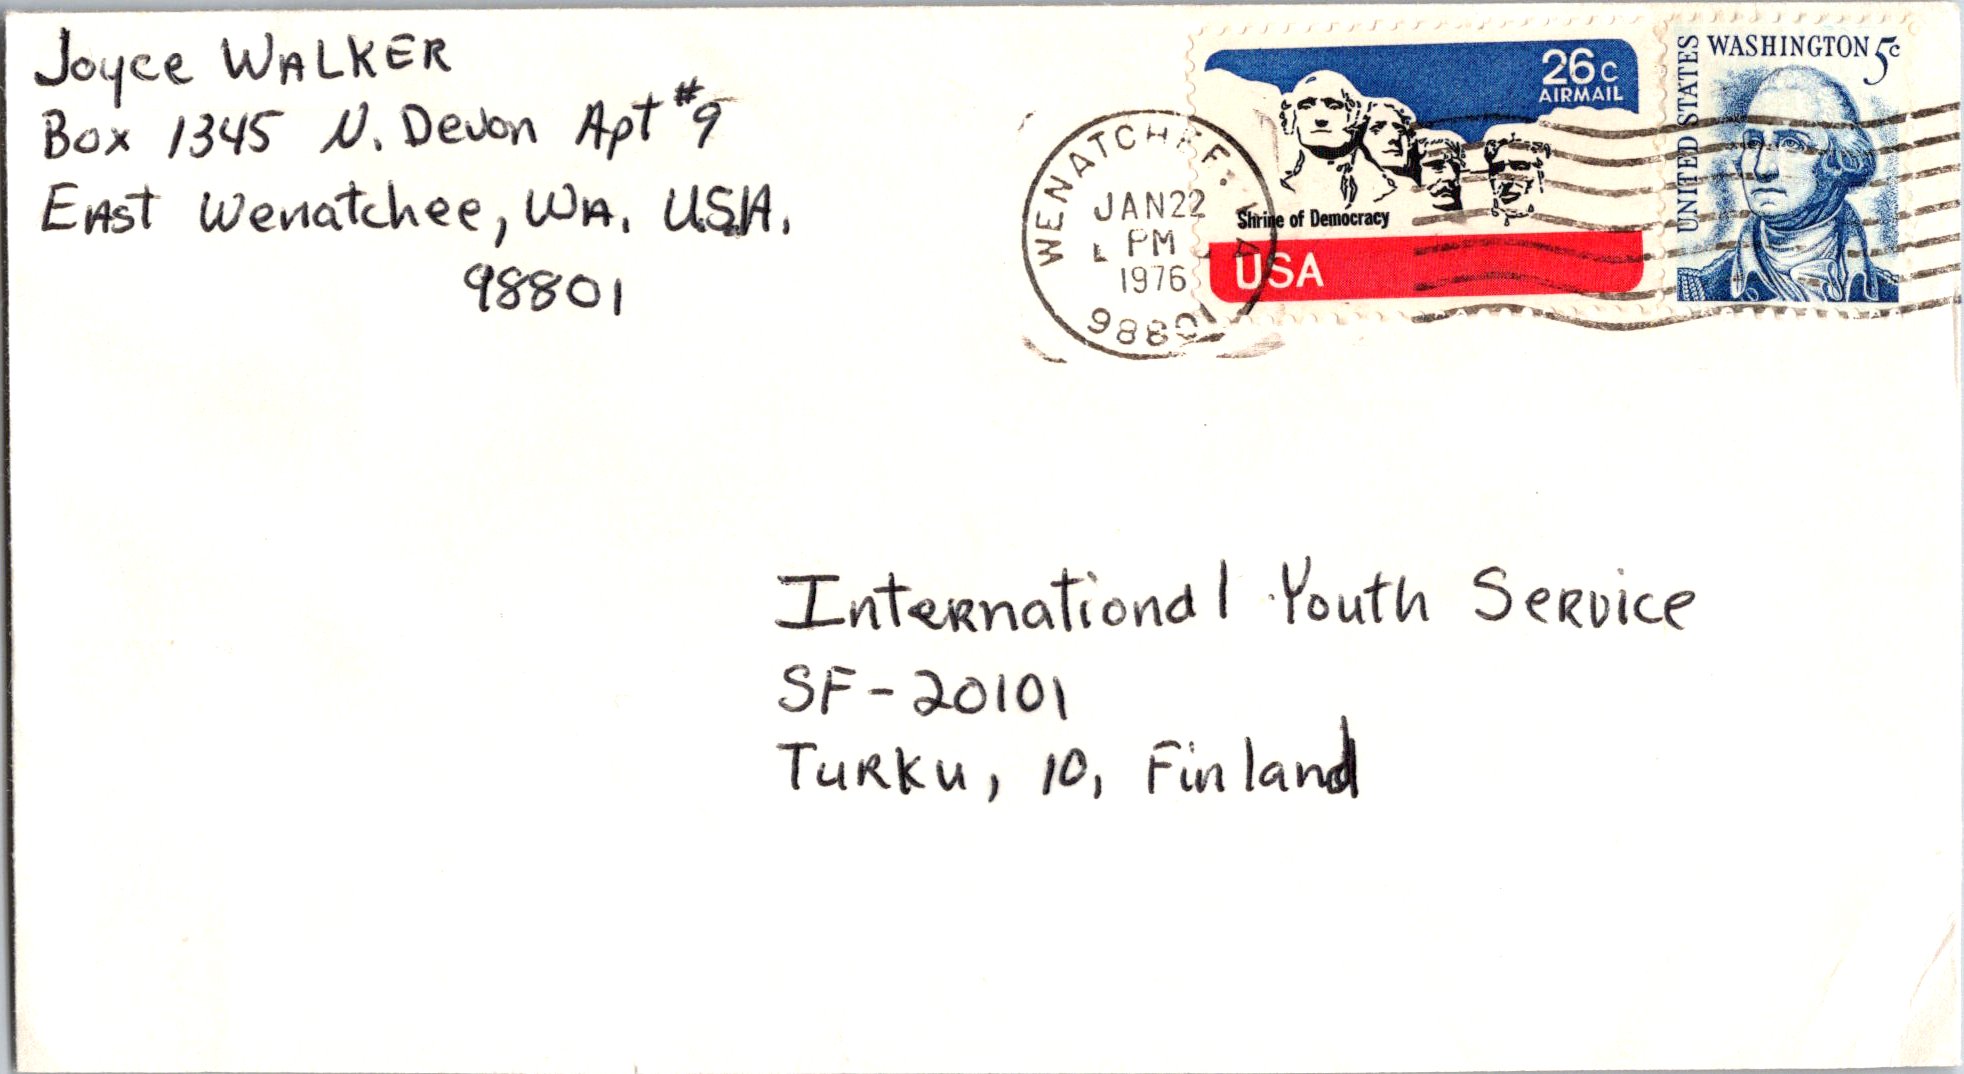 Joyce WALKER
Box 1345 N. Devon Apt #9
EAst Wenatchee, WA. U.S.A.
98801
WENATCHEE. WA
JAN 22
PM
1976
98801
26c
AIRMAIL
Shrine of Democracy
USA
UNITED STATES
WASHINGTON 5c
International Youth Service
SF-20101
TURKU, 10, Finland